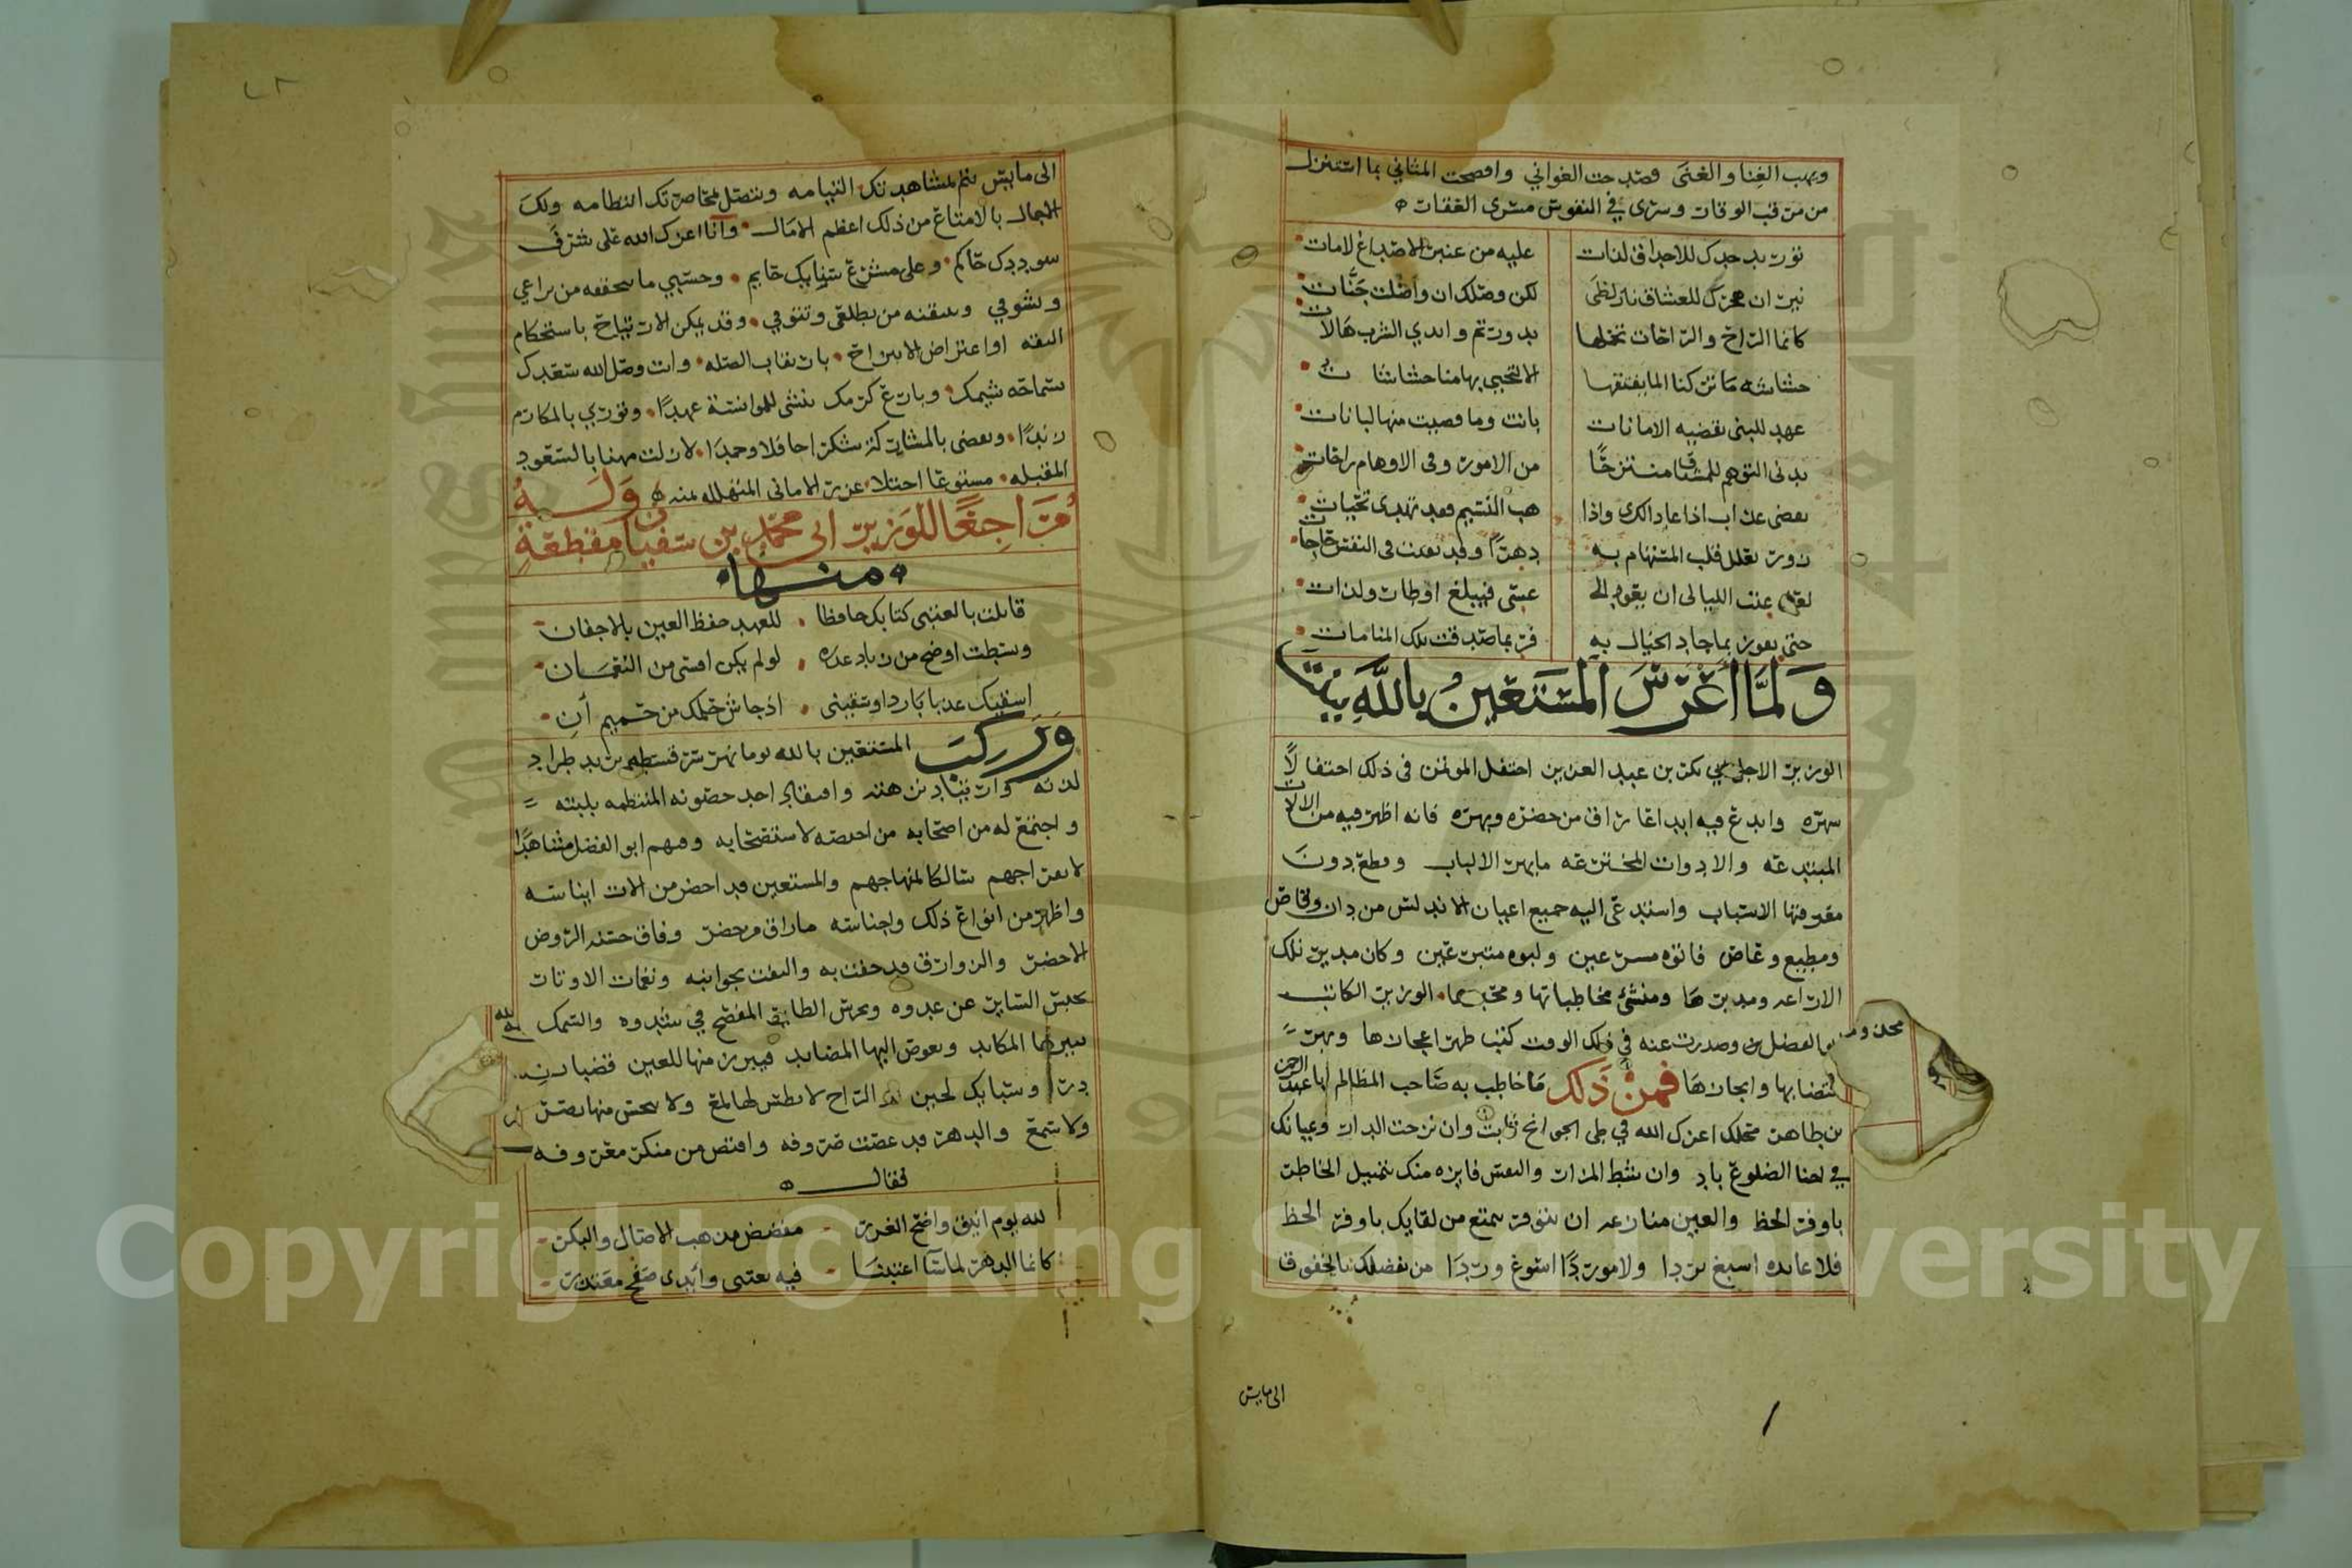 ويهب الغنا والغنى وصدحت الغواني وافصحت المثاني بما استنزل
من مرقب الوقار وسرى في النفوس مسرى العقار
توريد خدك للاحداق لذات عليه من عنبر الاصداغ لامات
نيران هجرك للعشاق نار لظى لكن وصلك ان واصلت جنات
كانما الراح والراحات تحملها بدور تم وايدي الشرب هالات
حشاشه ما تركنا الما يقتلها الا لتحيى بها منا حشاشات
عهد للبنى تقضيه الامانات بانت وما قضيت منها لبانات
يدنى التوهم للمشتاق منتزحا من الامور وفى الاوهام راحات
تقضى عدات اذا عاد الكرى واذا هب النسيم فقد تهدى تحيات
زور تعلل قلب المستهام به دهرا وقد بقيت فى النفس حاجات
لعل عتب الليالى ان يعود الى عتبى فيبلغ اوطار ولذات
حتى نفوز بما جاد الخيال به فربما صدقت تلك المنامات
ولما أعرس المستعين بالله ببنت
الوزير الاجل ابي بكر بن عبد العزيز احتفل المؤتمن فى ذلك احتفالا
شهره وابدع فيه ابداعا راق من حضره وبهره فانه اظهر فيه من الالات
المبتدعه والادوات المخترعه ما بهر الالباب وقطع دون
معرفتها الاسباب واستدعى اليه جميع اعيان الاندلس من دان وقاص
ومطيع وعاص فاتوه مسرعين ولبوه متبرعين وكان مدير تلك
الاراعه ومدبرها ومنشئ مخاطباتها ومحبرها الوزير الكاتب
ابو الفضل وصدرت عنه في ذلك الوقت كتب ظهر اعجازها وبهر
اقتضابها وايجازها فمن ذلك ما خاطب به صاحب المظالم ابا عبد الرحمن
بن طاهر محلك اعزك الله في طى الجوانح ثابت وان نزحت الدار وعيانك
في احنا الضلوع باد وان شط المزار والنفس فايزه منك بتمثيل الخاطر
باوفر الحظ والعين منازعه ان تتوفر بمتع من لقايك باوفر الحظ
فلا عايده اسبغ بردا ولا مورد اسوغ وردا من تفضلك بالخفوف
الى مايس
الى مايس يتم لمشاهدتك التيامه ويتصل بمحاضرتك انتظامه ولك
الاجمال بالامتاع من ذلك اعظم الامال وانا اعزك الله على شرف
سوددك حاكم وعلى مشرع سنايك حايم وحسبي ما تحققه من نزاعي
وتشوفي وتتيقنه من تطلعى وتتوفي وقد تمكن الارتياح باستحكام
الثقه او اعتراض الانتزاح بارتقاب الصله وانت وصل الله سعدك
بسماحه شيمك وبارع كرمك تنشى للموانسة عهدا وتوري بالمكارم
زندا وتقضى بالمشاركه شكرا حافلا وحمدا لازلت مهنا بالسعود
المقبله مسوغا اجتلا غرر الامانى المتهلله بمنه وله
مراجعا للوزير ابى محمد بن سفيان قطعة
منها
قابلت بالعتبى كتابك حافظا للعهد حفظ العين بالاجفان
وبسطت اوضح من زياد عذره لو لم يكن امسى من النعمان
اسقيك عذبا باردا وسقيتنى اذ جاش حملك من حميم آن
وركب المستعين بالله يوما نهر سرقسطه يريد طراد
لذته وارتياد نزهته وافتقاد احد حصونه المنتظمه بلبته
واجتمع له من اصحابه من اختصه لاستصحابه وفيهم ابو الفضل مشاهدا
لانفراجهم سالكا لمنهاجهم والمستعين قد احضر من الات ايناسه
واظهر من انواع ذلك واجناسه ما راق من حضر وفاق حسنه الروض
الاخضر والزوارق قد حفت به والتفت بجوانبه ونغمات الاوتار
تحبس الساير عن عدوه وتخرس الطاير المفصح في شدوه والسمك
تثيرها المكايد وتغوص اليها المصايد فيبرز منها للعين قضبان
در وسبايك لجين والراح لا يطمس لها لمع ولا يبخس منها بصر
ولا سمع والدهر قد غضت صروفه واقتص من منكره معروفه
فقال
لله يوم انيق واضح الغرر مفضض مذهب الاصال والبكر
كانما الدهر لما سآ اعتبنا فيه بعتبى وابدى صفح معتذر